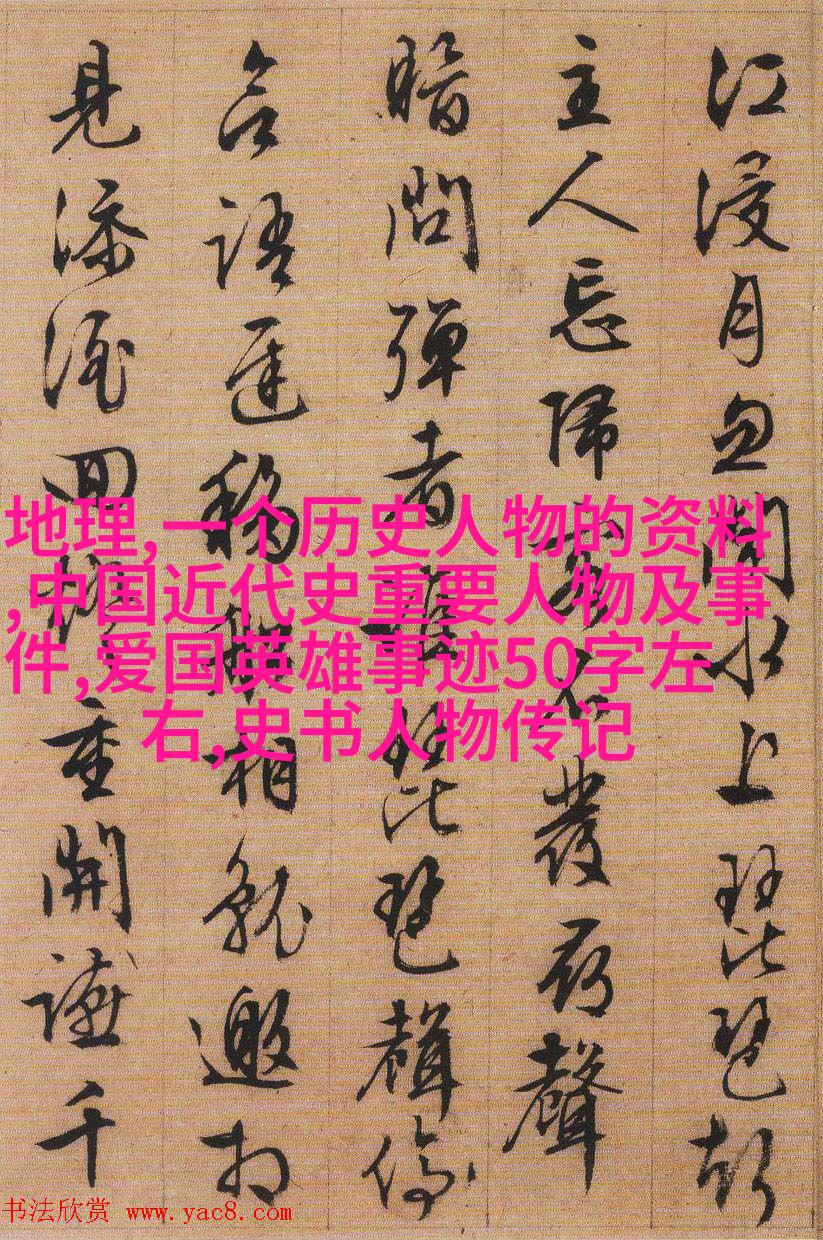 江浸月忽聞水上琵琶聲
主人忘歸客不發尋聲
暗問彈者誰琵琶聲停
欲語遲移船相就邀相
見添酒回燈重開讌千
地理,一个历史人物的资料
,中国近代史重要人物及事
件,爱国英雄事迹50字左
右,史书人物传记
书法欣赏 www.yac8.com